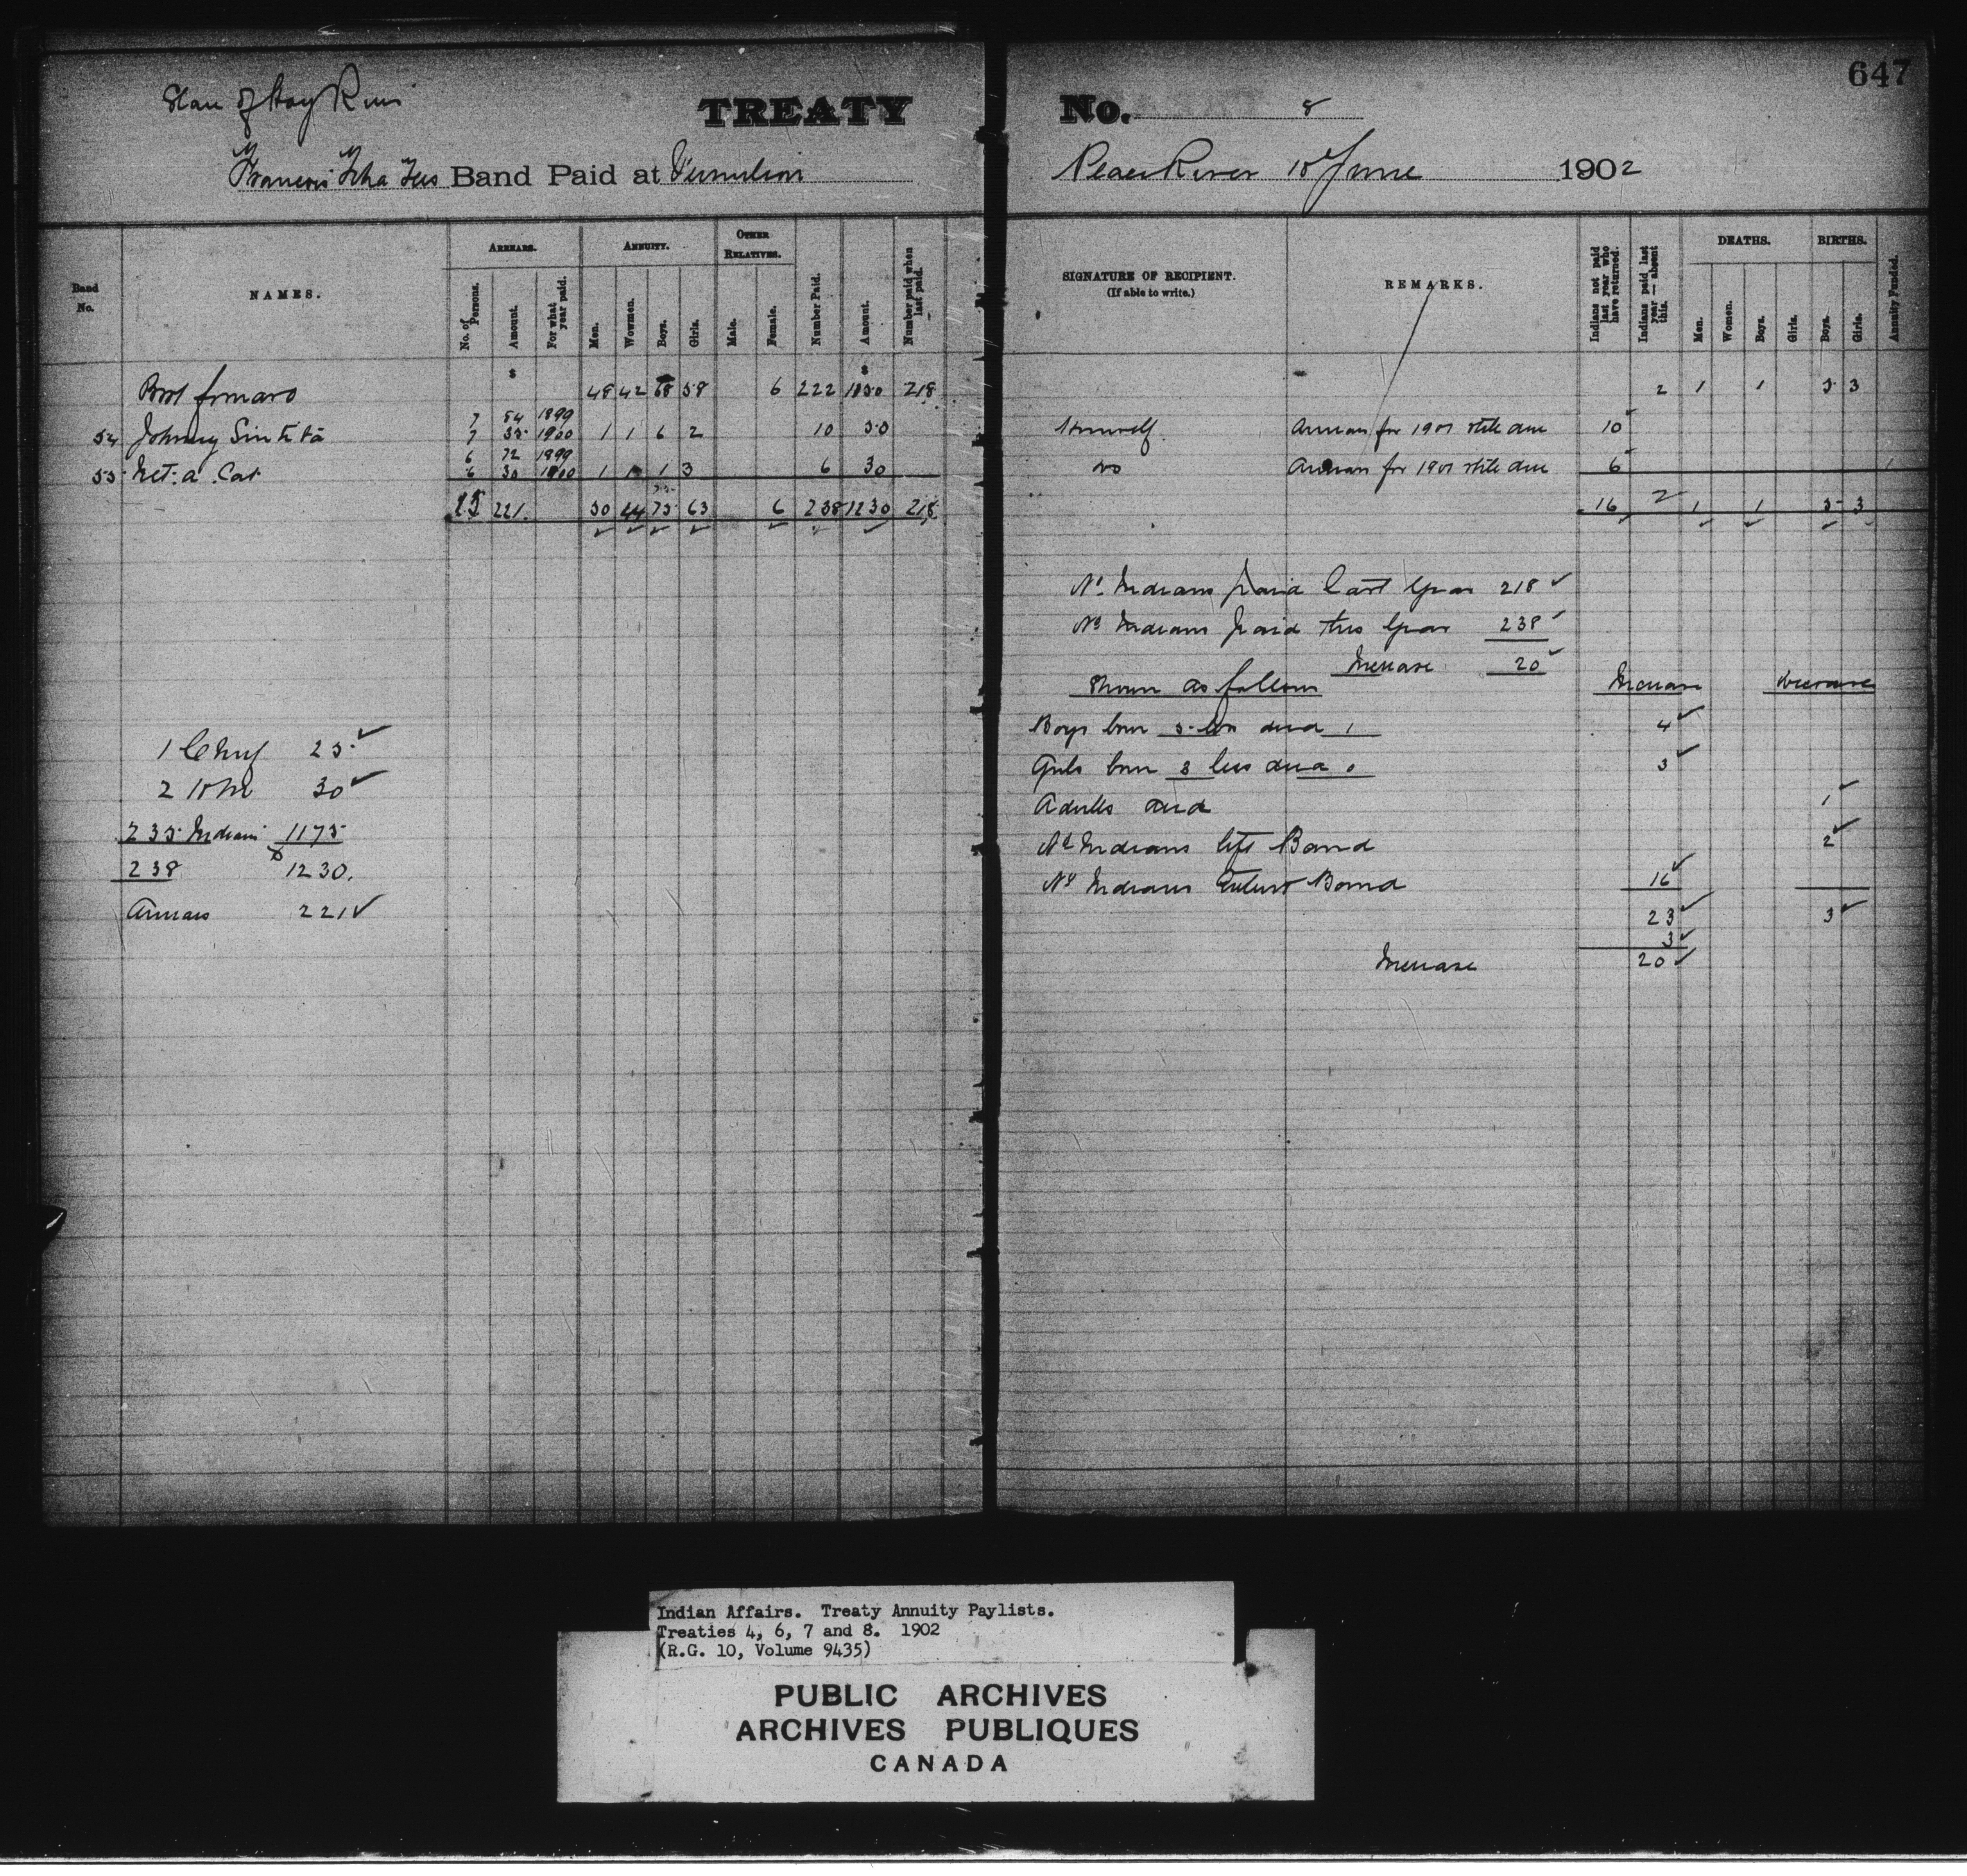 647
Slave of Hay River
TREATY No. 8
Francois Tcha Tees Band Paid at Vermilion Peace River 10 June 1902
Band No.
NAMES.
ARREARS.
No. of Persons.
Amount.
For what year paid.
ANNUITY.
Men.
Wowmen.
Boys.
Girls.
OTHER RELATIVES.
Male.
Female.
Number Paid.
Amount.
Number paid when last paid.
SIGNATURE OF RECIPIENT.
(If able to write.)
REMARKS.
Indians not paid last year who have returned.
Indians paid last year — absent this.
DEATHS.
Men.
Women.
Boys.
Girls.
BIRTHS.
Boys.
Girls.
Annuity Funded.
$ $
Brot forward 48 42 68 58 6 222 1150 218 2 1 1 5 3
7 54 1899
54 Johnny 7 35 1900 1 1 6 2 10 50 Himself Arrears for 1901 still due 10
6 72 1899
55 Net.a.Cat 6 30 1900 1 1 1 3 6 30 do Arrears for 1901 still due 6
221 50 44 75 63 6 238 1230 218 16 2 1 1 5 3
No Indians paid last year 218
No Indians paid this year 238
Increase 20
Shown as follows Increase Decrease
Boys born 5 less dead 1 4
Girls born 3 less dead 0 3
Adults dead 1
No Indians left Band 2
No Indians Enterd Band 16
23 3
3
Increase 20
1 Chief 25
2 H M 30
235 Indians 1175
238 $1230.
Arrears 221
Indian Affairs. Treaty Annuity Paylists.
Treaties 4, 6, 7 and 8. 1902
(R.G. 10, Volume 9435)
PUBLIC ARCHIVES
ARCHIVES PUBLIQUES
CANADA